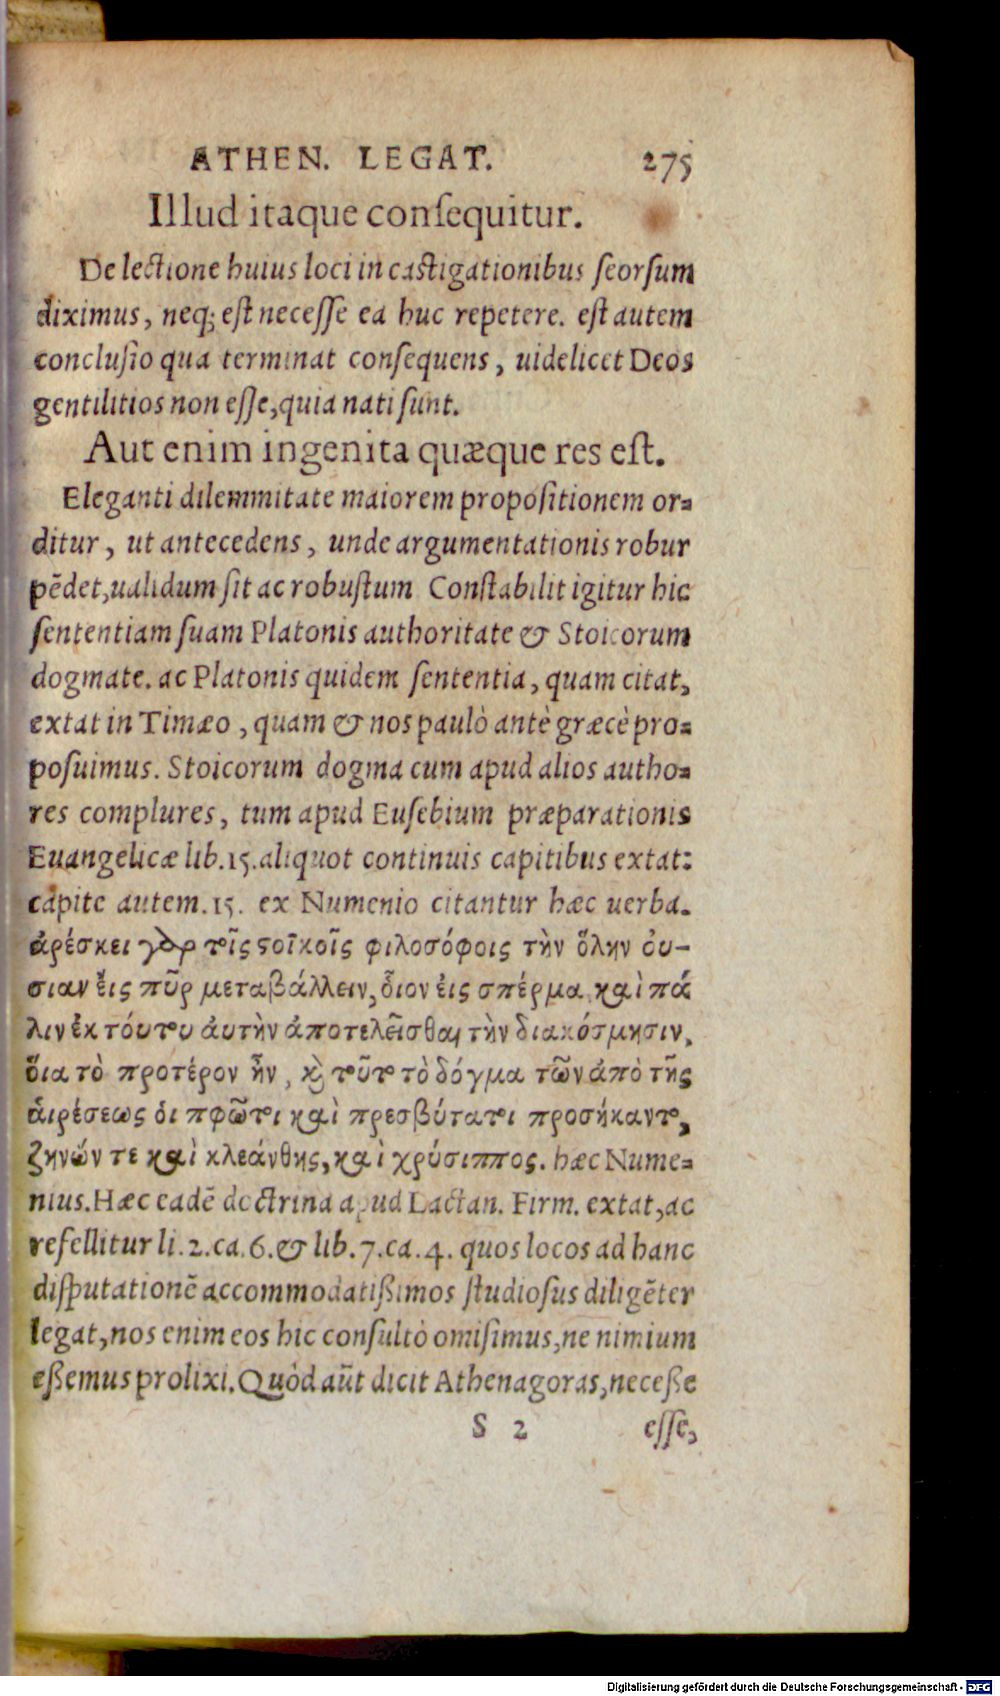 ATHEN. LEGAT. 275
Illud itaque conſequitur.
De lectione huius loci in caſtigationibus ſeorſum
diximus, neq; eſt neceſſe ea huc repetere. eſt autem
concluſio qua terminat conſequens, uidelicet Deos
gentilitios non eſſe, quia nati ſunt.
Aut enim ingenita quæque res eſt.
Eleganti dilemmitate maiorem propoſitionem or-
ditur, ut antecedens, unde argumentationis robur
pēdet, ualidum ſit ac robuſtum Conſtabilit igitur hic
ſententiam ſuam Platonis authoritate & Stoicorum
dogmate. ac Platonis quidem ſententia, quam citat,
extat in Timæo, quam & nos paulò antè græcè pro-
poſuimus. Stoicorum dogma cum apud alios autho-
res complures, tum apud Euſebium præparationis
Euangelicæ lib. 15. aliquot continuis capitibus extat:
capite autem. 15. ex Numenio citantur hæc uerba.
ἀρέσκει γὰρ τοῖς ϛοϊκοῖς φιλοσόφοις τὴν ὅλην ὀυ-
σιαν ἔις πῦρ μεταβάλλειν, ὅιον ἐις σπέρμα, καὶ πά
λιν ἐκ τόυτου ἀυτὴν ἀποτελεῖσθαι τὴν διακόσμησιν,
ὅια τὸ προτέρον ἦν, καὶ τοῦτο τὸ δόγμα τῶν ἀπὸ τῆς
ἁιρέσεως ὁι πρῶτοι καὶ πρεσβύτατοι προσήκαντο,
ζηνών τε καὶ κλεάνθης, καὶ χρύσιππος. hæc Nume-
nius. Hæc eadē doctrina apud Lactan. Firm. extat, ac
refellitur li. 2. ca. 6. & lib. 7. ca. 4. quos locos ad hanc
diſputationē accommodatißimos ſtudioſus diligēter
legat, nos enim eos hic conſultò omiſimus, ne nimium
eßemus prolixi. Quòd aūt dicit Athenagoras, neceße
S 2 eſſe,
Digitalisierung gefördert durch die Deutsche Forschungsgemeinschaft - DFG